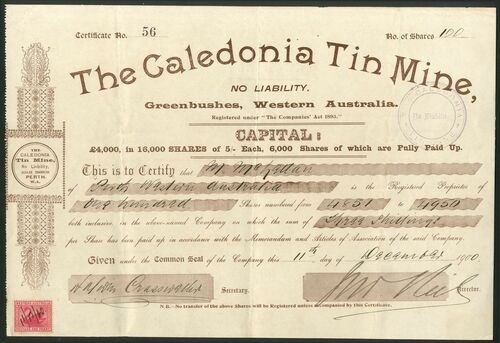 Certificate No. 56
No. of Shares 100
The Caledonia Tin Mine,
NO LIABILITY.
Greenbushes, Western Australia.
Registered under "The Companies' Act 1893."
CAPITAL:
£4,000, in 16,000 SHARES of 5/- Each, 6,000 Shares of which are Fully Paid Up.
THE
CALEDONIA
Tin Mine,
No Liability.
PERTH,
W.A.
No Liability.
This is to Certify that
of Perth Western Australia is the Registered Proprietor of
One hundred Shares numbered from 4851 to 4950
both inclusive in the above-named Company on which the sum of Three Shillings
per Share has been paid up in accordance with the Memorandum and Articles of Association of the said Company.
Given under the Common Seal of the Company this 11th day of December 1900.
Secretary.
Director.
N.B.—No transfer of the above Shares will be Registered unless accompanied by this Certificate.